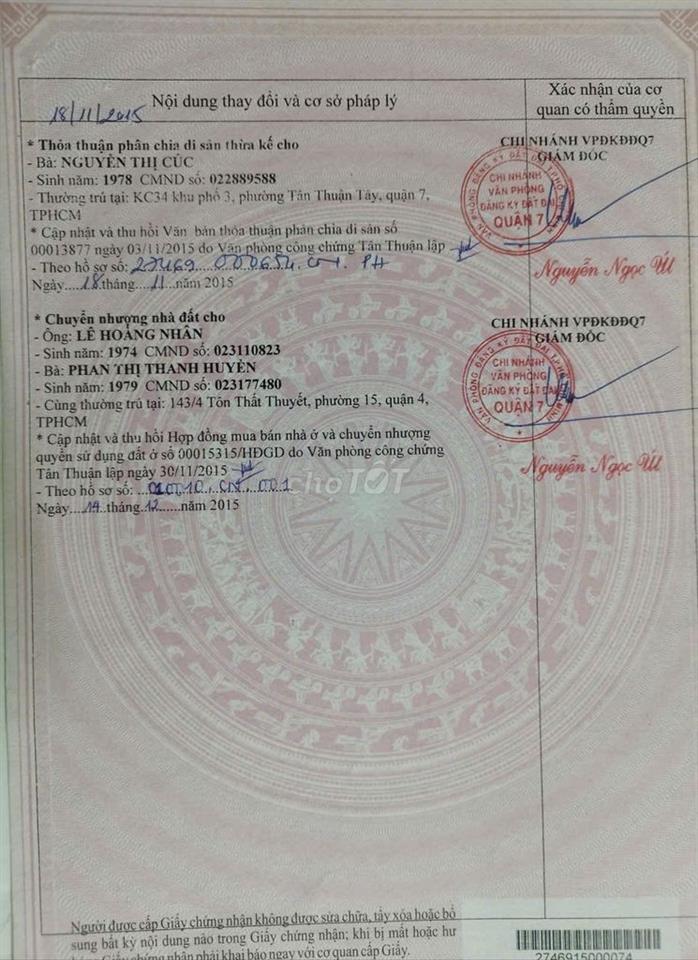 18/11/2015
Nội dung thay đổi và cơ sở pháp lý
Xác nhận của cơ
quan có thẩm quyền
* Thỏa thuận phân chia di sản thừa kế cho
- Bà: NGUYỄN THỊ CÚC
- Sinh năm: 1978 CMND số: 022889588
- Thường trú tại: KC34 khu phố 3, phường Tân Thuận Tây, quận 7,
TPHCM
* Cập nhật và thu hồi Văn bản thỏa thuận phân chia di sản số
00013877 ngày 03/11/2015 do Văn phòng công chứng Tân Thuận lập
- Theo hồ sơ số: 27469.000654.CN.PH
Ngày....18tháng...11..năm 2015
CHI NHÁNH VPĐKĐĐQ7
GIÁM ĐỐC
VĂN PHÒNG ĐĂNG KÝ ĐẤT ĐAI TP HỒ CHÍ MINH
CHI NHÁNH
VĂN PHÒNG
ĐĂNG KÝ ĐẤT ĐAI
QUẬN 7
Nguyễn Ngọc Út
* Chuyển nhượng nhà đất cho
- Ông: LÊ HOÀNG NHÂN
- Sinh năm: 1974 CMND số: 023110823
- Bà: PHAN THỊ THANH HUYỀN
- Sinh năm: 1979 CMND số: 023177480
- Cùng thường trú tại: 143/4 Tôn Thất Thuyết, phường 15, quận 4,
TPHCM
* Cập nhật và thu hồi Hợp đồng mua bán nhà ở và chuyển nhượng
quyền sử dụng đất ở số 00015315/HĐGD do Văn phòng công chứng
Tân Thuận lập ngày 30/11/2015
- Theo hồ sơ số: 010.CN.001
Ngày....14 tháng..12......năm 2015
CHI NHÁNH VPĐKĐĐQ7
GIÁM ĐỐC
VĂN PHÒNG ĐĂNG KÝ ĐẤT ĐAI TP HỒ CHÍ MINH
CHI NHÁNH
VĂN PHÒNG
ĐĂNG KÝ ĐẤT ĐAI
QUẬN 7
Nguyễn Ngọc Út
chợTỐT
Người được cấp Giấy chứng nhận không được sửa chữa, tẩy xóa hoặc bổ
sung bất kỳ nội dung nào trong Giấy chứng nhận; khi bị mất hoặc hư
chứng nhận phải khai báo ngay với cơ quan cấp Giấy.
2746915000074